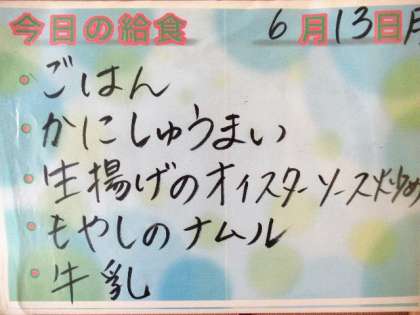 今日の給食 6月13日月
ごはん
かにしゅうまい
生揚げのオイスターソース炒め
もやしのナムル
牛乳